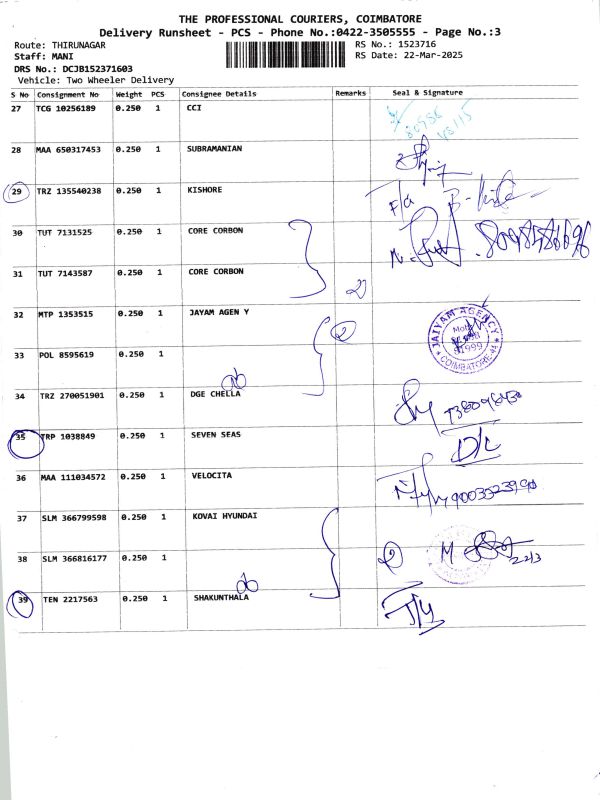 THE PROFESSIONAL COURIERS, COIMBATORE
Delivery Runsheet - PCS - Phone No.:0422-3505555 - Page No.:3
Route: THIRUNAGAR RS No.: 1523716
Staff: MANI RS Date: 22-Mar-2025
DRS No.: DCJB152371603
Vehicle: Two Wheeler Delivery
S No Consignment No Weight PCS Consignee Details Remarks Seal & Signature
27 TCG 10256189 0.250 1 CCI
28 MAA 650317453 0.250 1 SUBRAMANIAN
29 TRZ 135540238 0.250 1 KISHORE
30 TUT 7131525 0.250 1 CORE CORBON
31 TUT 7143587 0.250 1 CORE CORBON
2
32 MTP 1353515 0.250 1 JAYAM AGEN Y
2
JAIYAM AGENCY
COIMBATORE-44
33 POL 8595619 0.250 1
34 TRZ 270051901 0.250 1 DGE CHELLA
35 TRP 1038849 0.250 1 SEVEN SEAS
D/L
36 MAA 111034572 0.250 1 VELOCITA
37 SLM 366799598 0.250 1 KOVAI HYUNDAI
38 SLM 366816177 0.250 1
2
22/3
39 TEN 2217563 0.250 1 SHAKUNTHALA